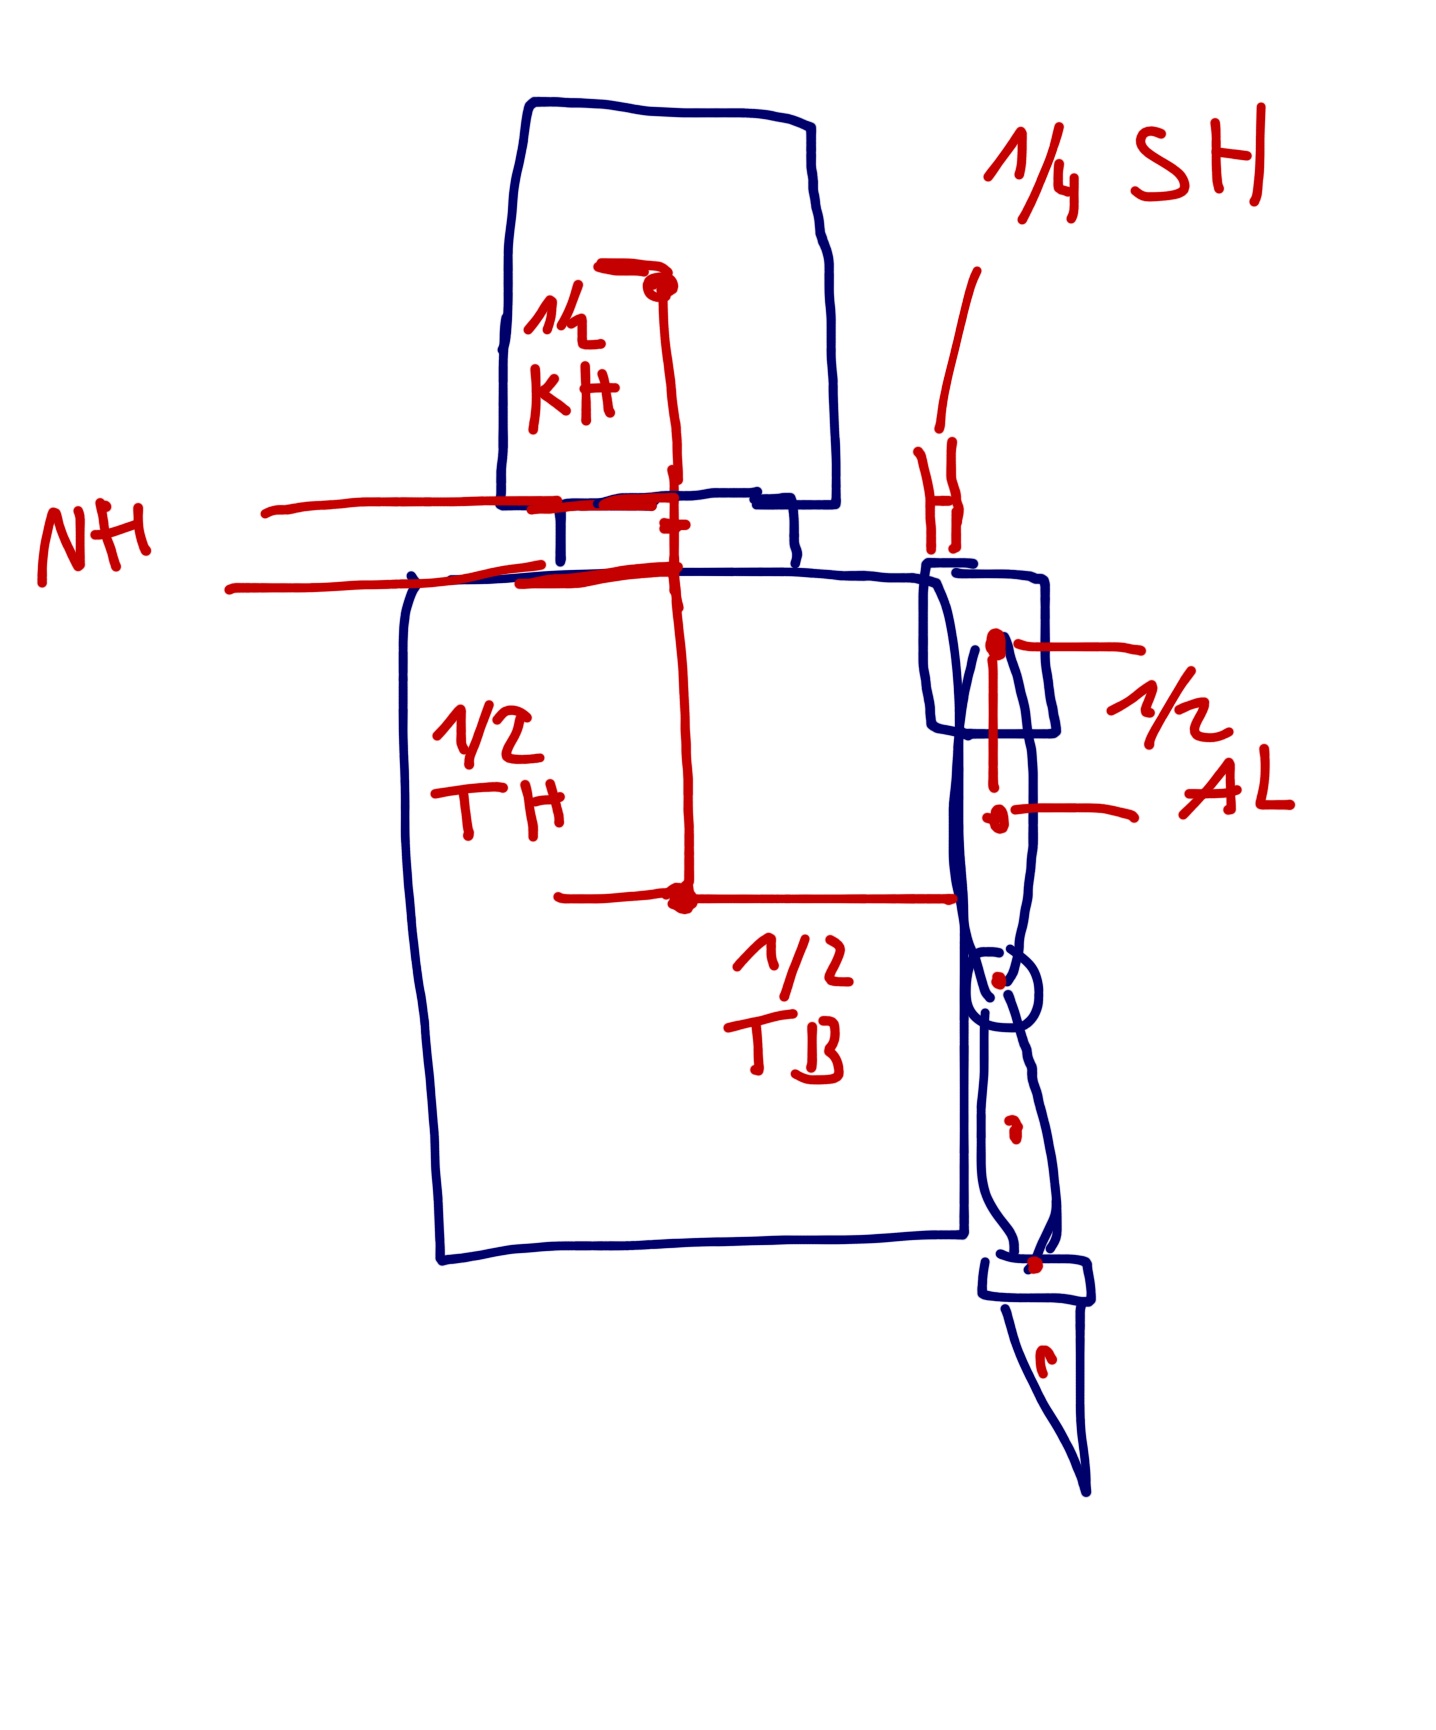 1/4 SH
1/2
KH
NH
1/2
TH
1/2
AL
1/2
TB